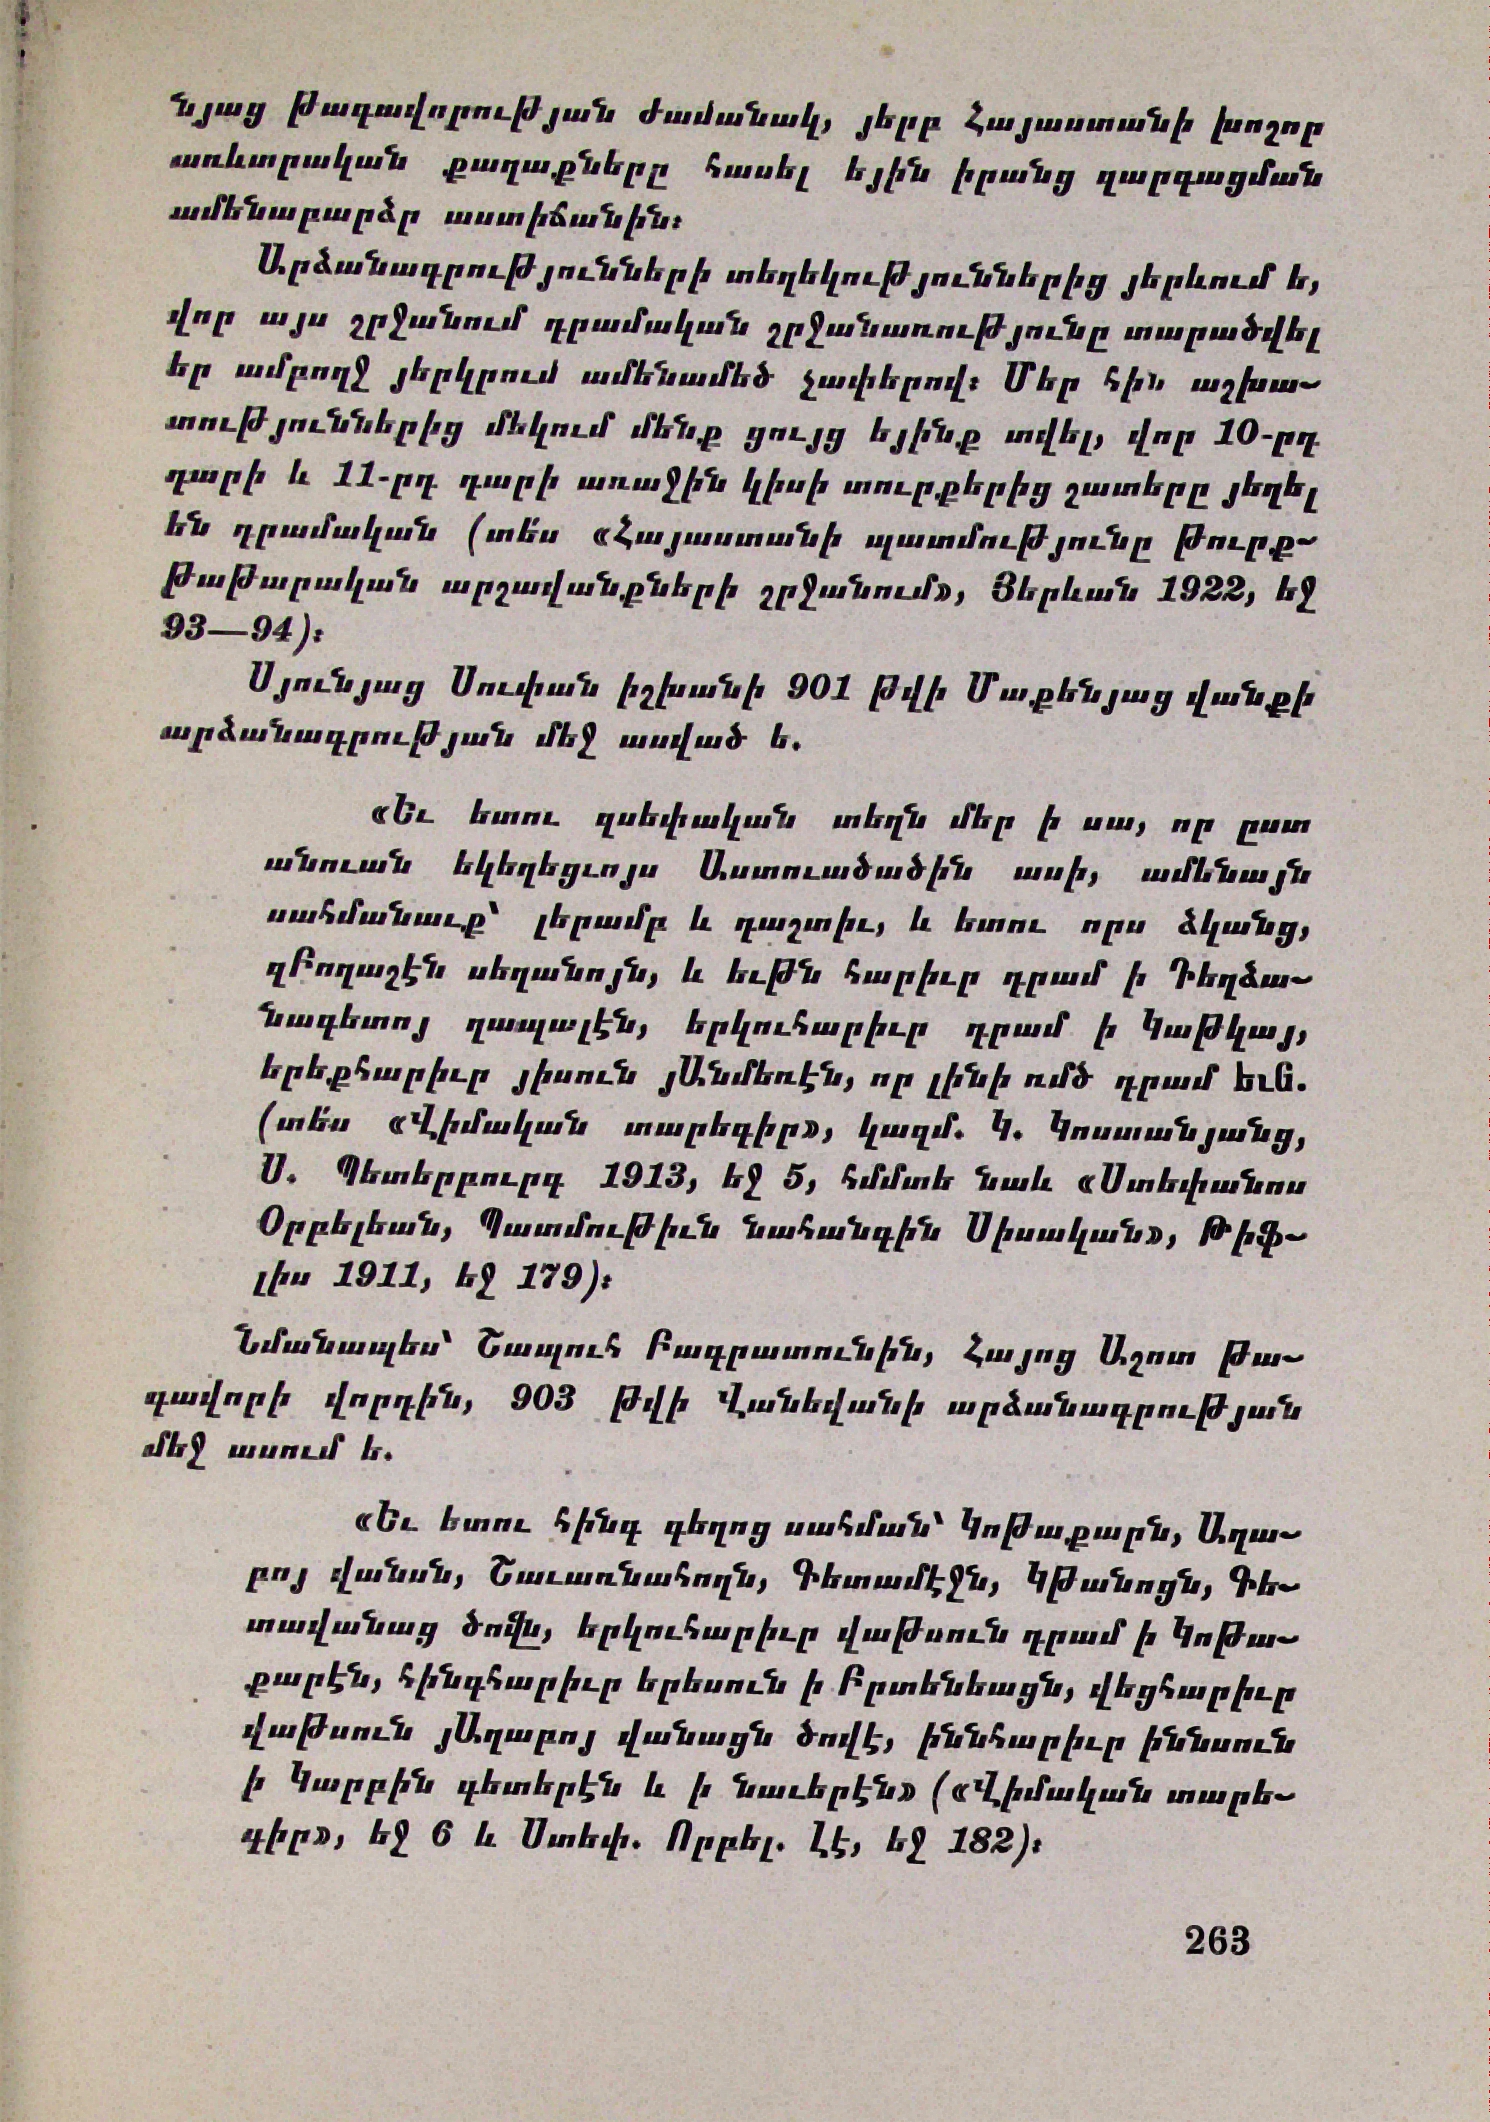 նյաց թագավորության ժամանակ, յերբ Հայաստանի խոշոր
առևտրական քաղաքները հասել եյին իրանց զարգացման
ամենաբարձր աստիճանին։
Արձանագրությունների տեղեկություններից յերևում ե,
վոր այս շրջանում դրամական շրջանառությունը տարածվել
եր ամբողջ յերկրում ամենամեծ չափերով։ Մեր հին աշխա-
տություններից մեկում մենք ցույց եյինք տվել, վոր 10-րդ
դարի և 11-րդ դարի առաջին կիսի տուրքերից շատերը յեղել
են դրամական (տե՛ս «Հայաստանի պատմությունը թուրք-
թաթարական արշավանքների շրջանում», Յերևան 1922, եջ
93—94)։
Սյունյաց Սուփան իշխանի 901 թվի Մաքենյաց վանքի
արձանագրության մեջ ասված ե.
«Եւ ետու զսեփական տեղն մեր ի սա, որ ըստ
անուան եկեղեցւոյս Աստուածածին ասի, ամենայն
սահմանաւք՝ լերամբ և դաշտիւ, և ետու որս ձկանց,
զԲողաշէն սեղանոյն, և եւթն հարիւր դրամ ի Գեղձա-
նագետոյ ղապալէն, երկուհարիւր դրամ ի Կաթկայ,
երեքհարիւր յիսուն յԱնմեռէն, որ լինի ռմծ դրամ եւն.
(տե՛ս «Վիմական տարեգիր», կազմ. Կ. Կոստանյանց,
Ս. Պետերբուրգ 1913, եջ 5, հմմտե նաև «Ստեփանոս
Օրբելեան, Պատմութիւն նահանգին Սիսական», Թիֆ-
լիս 1911, եջ 179)։
Նմանապես՝ Շապուհ Բագրատունին, Հայոց Աշոտ թա-
գավորի վորդին, 903 թվի Վանեվանի արձանագրության
մեջ ասում ե.
«Եւ ետու հինգ գեղոց սահման՝ Կոթաքարն, Աղա-
բոյ վանսն, Շաւառնահողն, Գետամէջն, Կթանոցն, Գե-
տավանաց ծովն, երկուհարիւր վաթսուն դրամ ի Կոթա-
քարէն, հինգհարիւր երեսուն ի Բրտենեացն, վեցհարիւր
վաթսուն յԱղաբոյ վանացն ծովէ, իննհարիւր իննսուն
ի Կարբին գետերէն և ի նաւերէն» («Վիմական տարե-
գիր», եջ 6 և Ստեփ. Որբել. ԼԷ, եջ 182)։
263